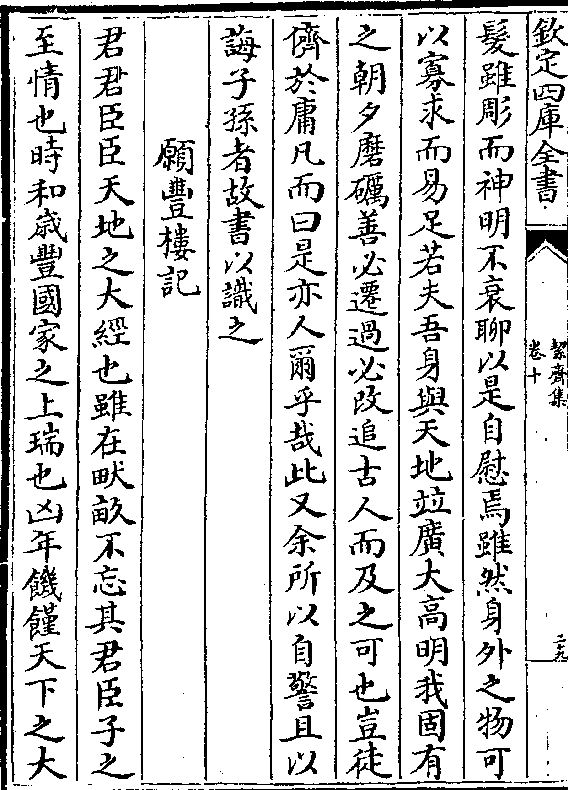 欽定四庫全書
絜齋集
卷十
二九
髮雖彫而神明不衰聊以是自慰焉雖然身外之物可
以寡求而易足若夫吾身與天地竝廣大高明我固有
之朝夕磨礪善必遷過必改追古人而及之可也豈徒
儕於庸凡而曰是亦人爾乎哉此又余所以自警且以
誨子孫者故書以識之
願豐樓記
君君臣臣天地之大經也雖在畎畝不忘其君臣子之
至情也時和歲豐國家之上瑞也凶年饑饉天下之大